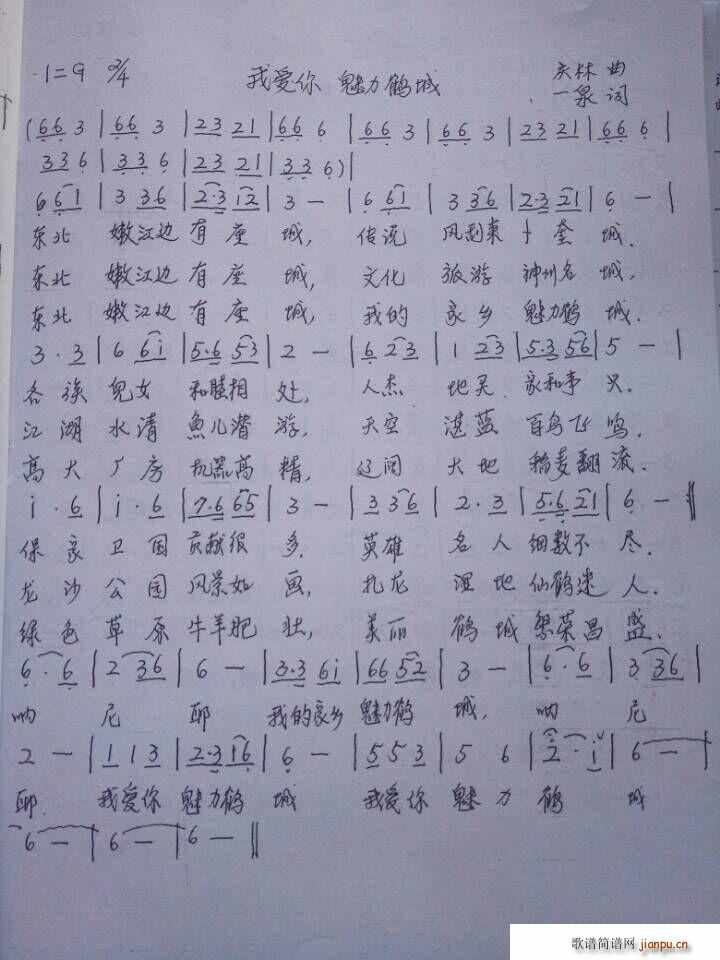 1=G 2/4 我爱你 魅力鹤城 庆林 曲
一泉 词
(6 6 3 | 6 6 3 | 2 3 2 1 | 6 6 6 | 6 6 3 | 6 6 3 | 2 3 2 1 | 6 6 6 |
3 3 6 | 3 3 6 | 2 3 2 1 | 3 3 6) |
6 6 1 | 3 3 6 | 2·3 1 2 | 3 — | 6 6 1 | 3 3 6 | 2·3 2 1 | 6 — |
东北 嫩江边 有 座 城, 传说 风刮来 卜 奎 城.
东北 嫩江边 有 座 城, 文化 旅游 神州名 城,
东北 嫩江边 有 座 城, 我的 家乡 魅力鹤 城.
3 · 3 | 6 6 i | 5·6 5 3 | 2 — | 6 2 3 | 1 2 3 | 5·3 5 6 | 5 — |
各族 儿女 和睦相 处, 人杰 地灵 家和事 兴.
江湖 水清 魚儿潜 游, 天空 湛蓝 百鸟飞 鸣,
高大 厂房 机器高 精, 辽阔 大地 稻麦翻 浪.
i · 6 | i · 6 | 7·6 6 5 | 3 — | 3 3 6 | 2 · 3 | 5·6 2 1 | 6 — ‖
保家 卫国 贡献很 多. 英雄 名人 细数不 尽.
龙沙 公园 风景如 画, 扎龙 湿地 仙鹤迷 人.
绿色 草原 牛羊肥 壮, 美丽 鹤城 繁荣昌 盛.
6 · 6 | 2 3 6 | 6 — | 3·3 6 i | 6 6 5 2 | 3 — | 6 · 6 | 3 3 6 |
呐 尼 耶 我的家乡 魅力鹤 城, 呐 尼
2 — | 1 1 3 | 2·3 1 6 | 6 — | 5 5 3 | 5 6 | 2 · i | 6 — |
耶. 我爱你 魅力鹤 城 我爱你 魅 力 鹤 城
6 — | 6 — | 6 — ‖
歌谱简谱网 jianpu.cn